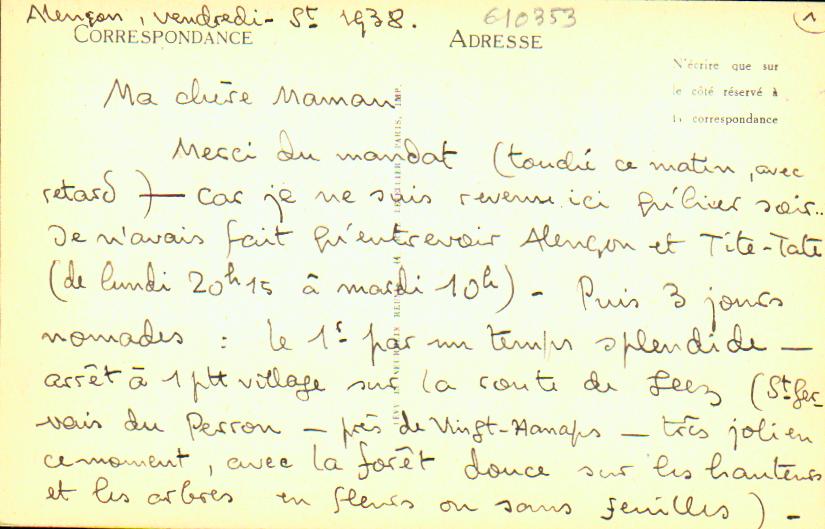 Alençon, vendredi - St 1938.
610353
1
CORRESPONDANCE
ADRESSE
N'écrire que sur
le côté réservé à
la correspondance
Ma chère Maman
Merci du mandat (touché ce matin, avec
retard) — car je ne suis revenue ici qu'hier soir..
Je n'avais fait qu'entrevoir Alençon et Tite-Tate
(de lundi 20h15 à mardi 10h) - Puis 3 jours
nomades : le 1r par un temps splendide —
arrêt à 1 ptt village sur la route de Seez (St Ger-
vais du Perron — près de Vingt-Hanaps — très joli en
ce moment, avec la forêt douce sur les hauteurs
et les arbres en fleurs ou sans feuilles) -